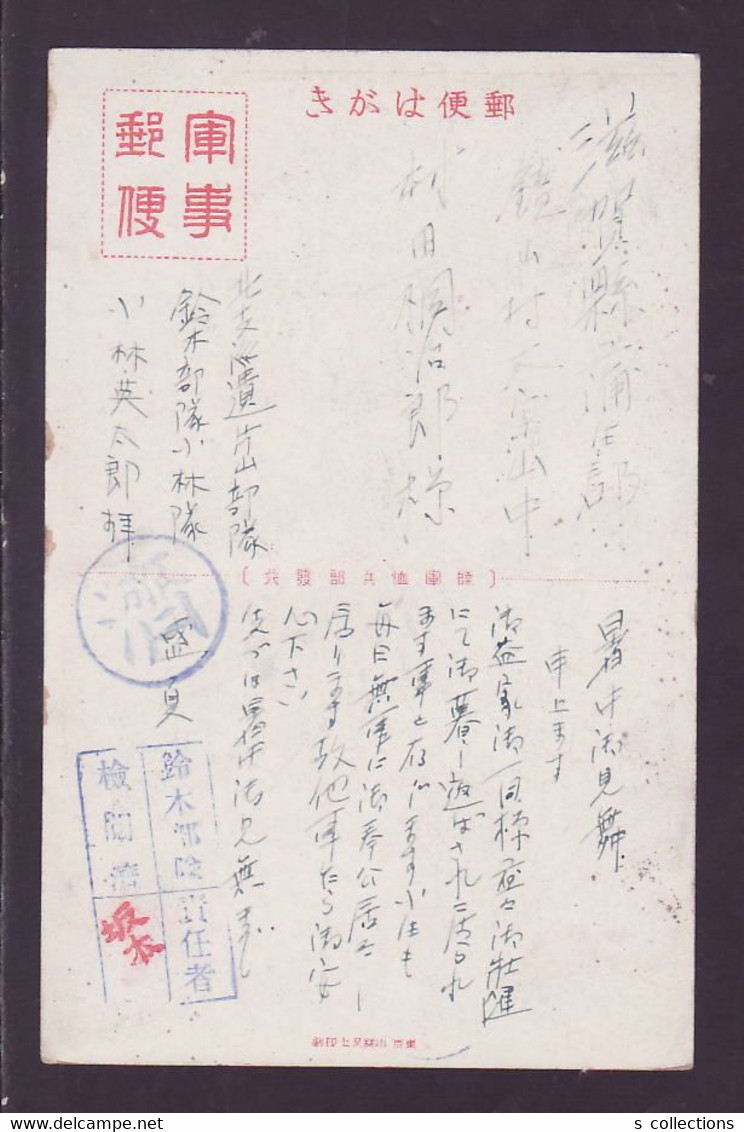 郵便はがき
軍事
郵便
滋賀縣蒲生郡
鏡山村大字山中
村田 治郎様
北支派遣片山部隊
鈴木部隊小林隊
小林英太郎拝
(陸軍恤兵部發行)
暑中御見舞
申上ます
御尊家御一同様 御壮健
にて御暮し 居られ
ます事と存じます小生も
毎日無事に御奉公致し
居ります故他事乍ら御安
心下さい
先づは暑中御見舞まで
盛夏
濟
鈴木部隊
檢閲濟
責任者
坂本
東京 印刷
s collections